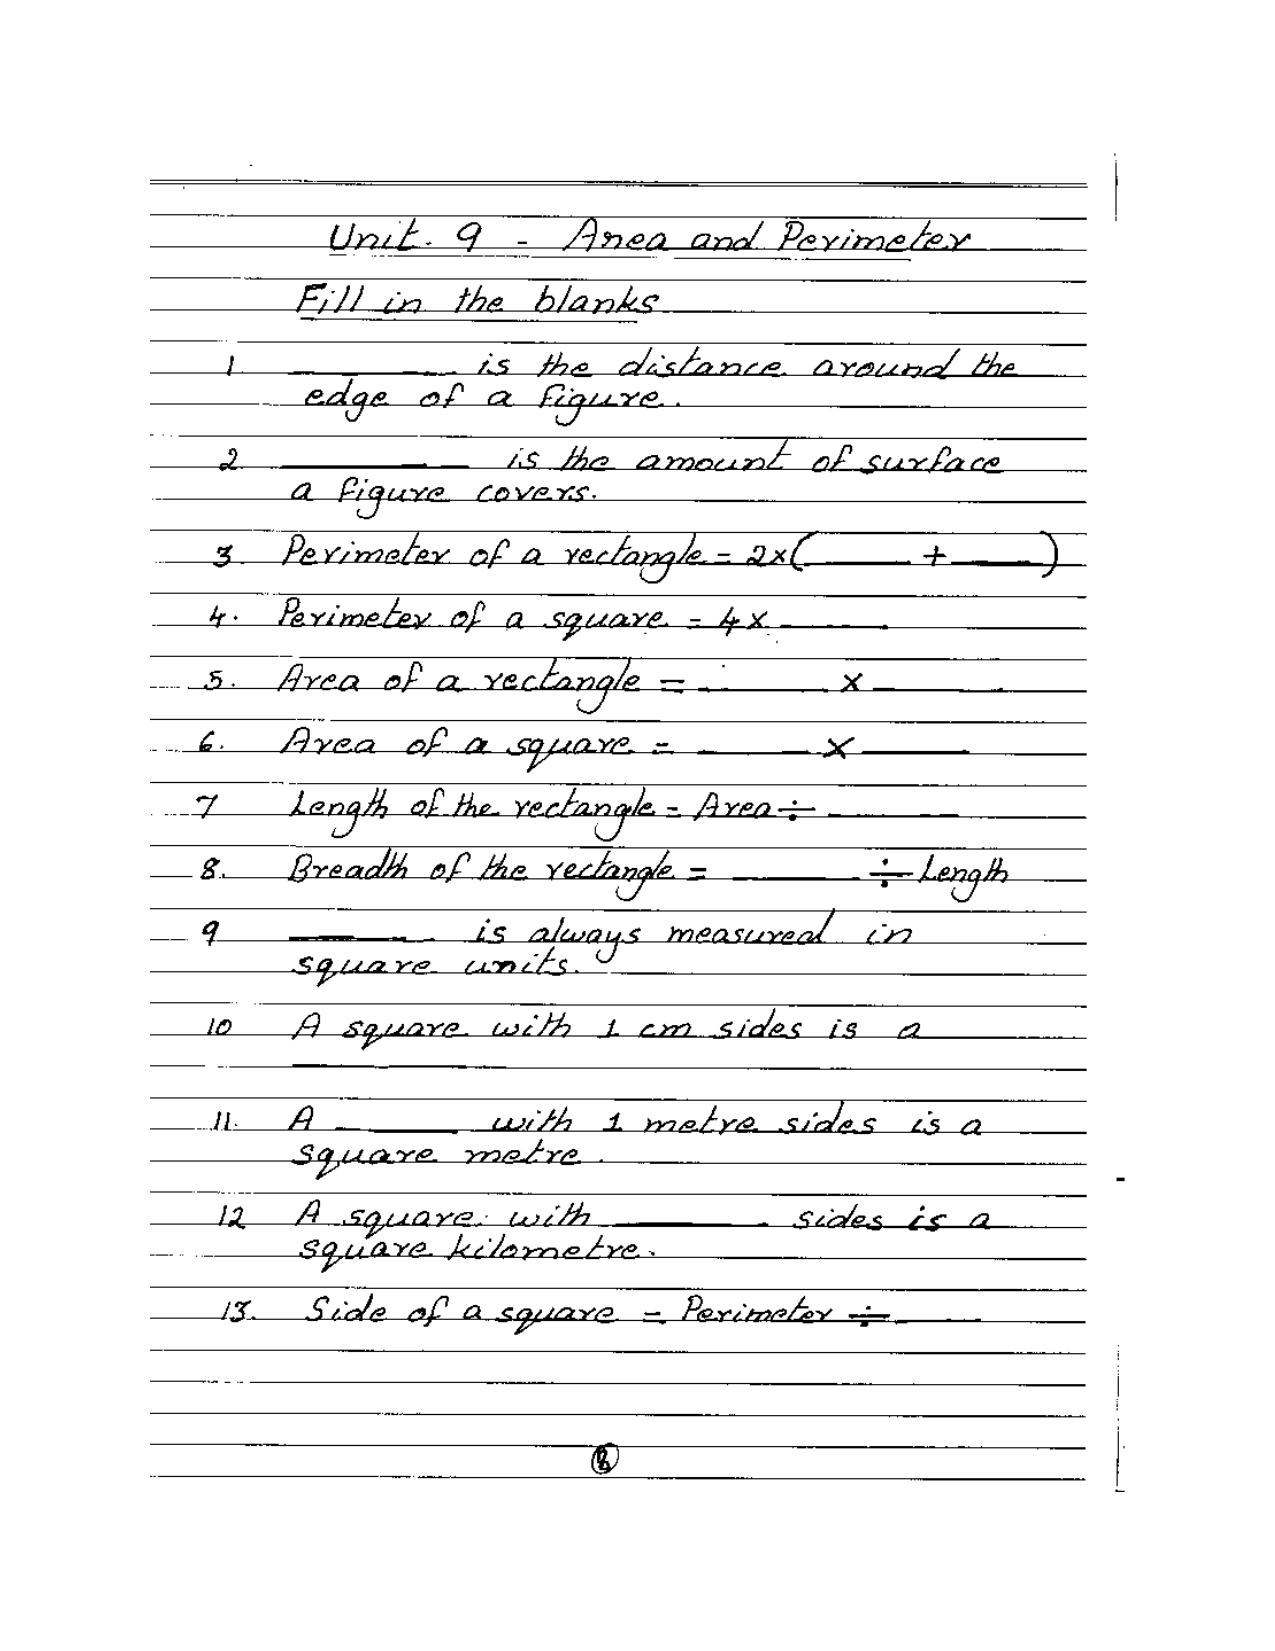 Unit. 9 - Area and Perimeter
Fill in the blanks
1. ______ is the distance around the
edge of a figure.
2 ______ is the amount of surface
a figure covers.
3 Perimeter of a rectangle = 2x(______ + ______)
4. Perimeter of a square = 4x ______
5. Area of a rectangle = ______ x ______
6. Area of a square = ______ x ______
7 Length of the rectangle = Area ÷ ______
8. Breadth of the rectangle = ______ ÷ Length
9 ______ is always measured in
square units.
10 A square with 1 cm sides is a
______
11. A ______ with 1 metre sides is a
square metre.
12 A square with ______ sides is a
square kilometre.
13. Side of a square = Perimeter ÷ ______